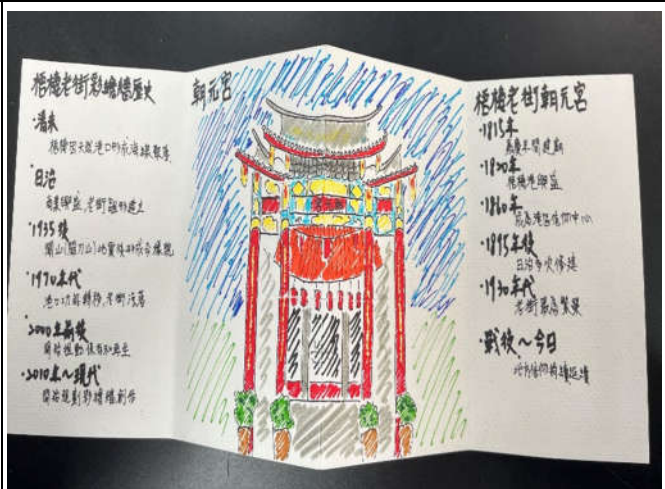 梧棲老街彩繪牆歷史
·清末
梧棲因天然港口形成海線聚落
·日治
商業興盛,老街雛形建立
·1935後
關山(關刀山)地震後形成今樣貌
·1970年代
港口功能轉移,老街沒落
·2000年前後
開始推動保存和再生
·2010年～現代
開始規劃彩繪牆創作
朝元宮
朝元宮
梧棲老街朝元宮
·1815年
嘉慶年間建廟
·1820年
梧棲港興盛
·1860年
成為港區信仰中心
·1895年後
日治多次修建
·1930年代
老街最為繁榮
·戰後～今日
地方信仰持續延續